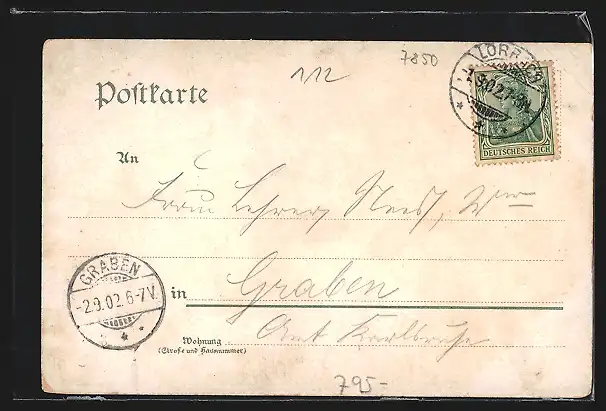 7850
1/12
LÖRRACH
1.9.02.7-8N.
DEUTSCHES REICH
Postkarte
An
Frau Lehrer Nees, Wwe
GRABEN
-2.9.02.6-7V.
in Graben
Amt Karlsruhe
Wohnung
(Straße und Hausnummer)
795-